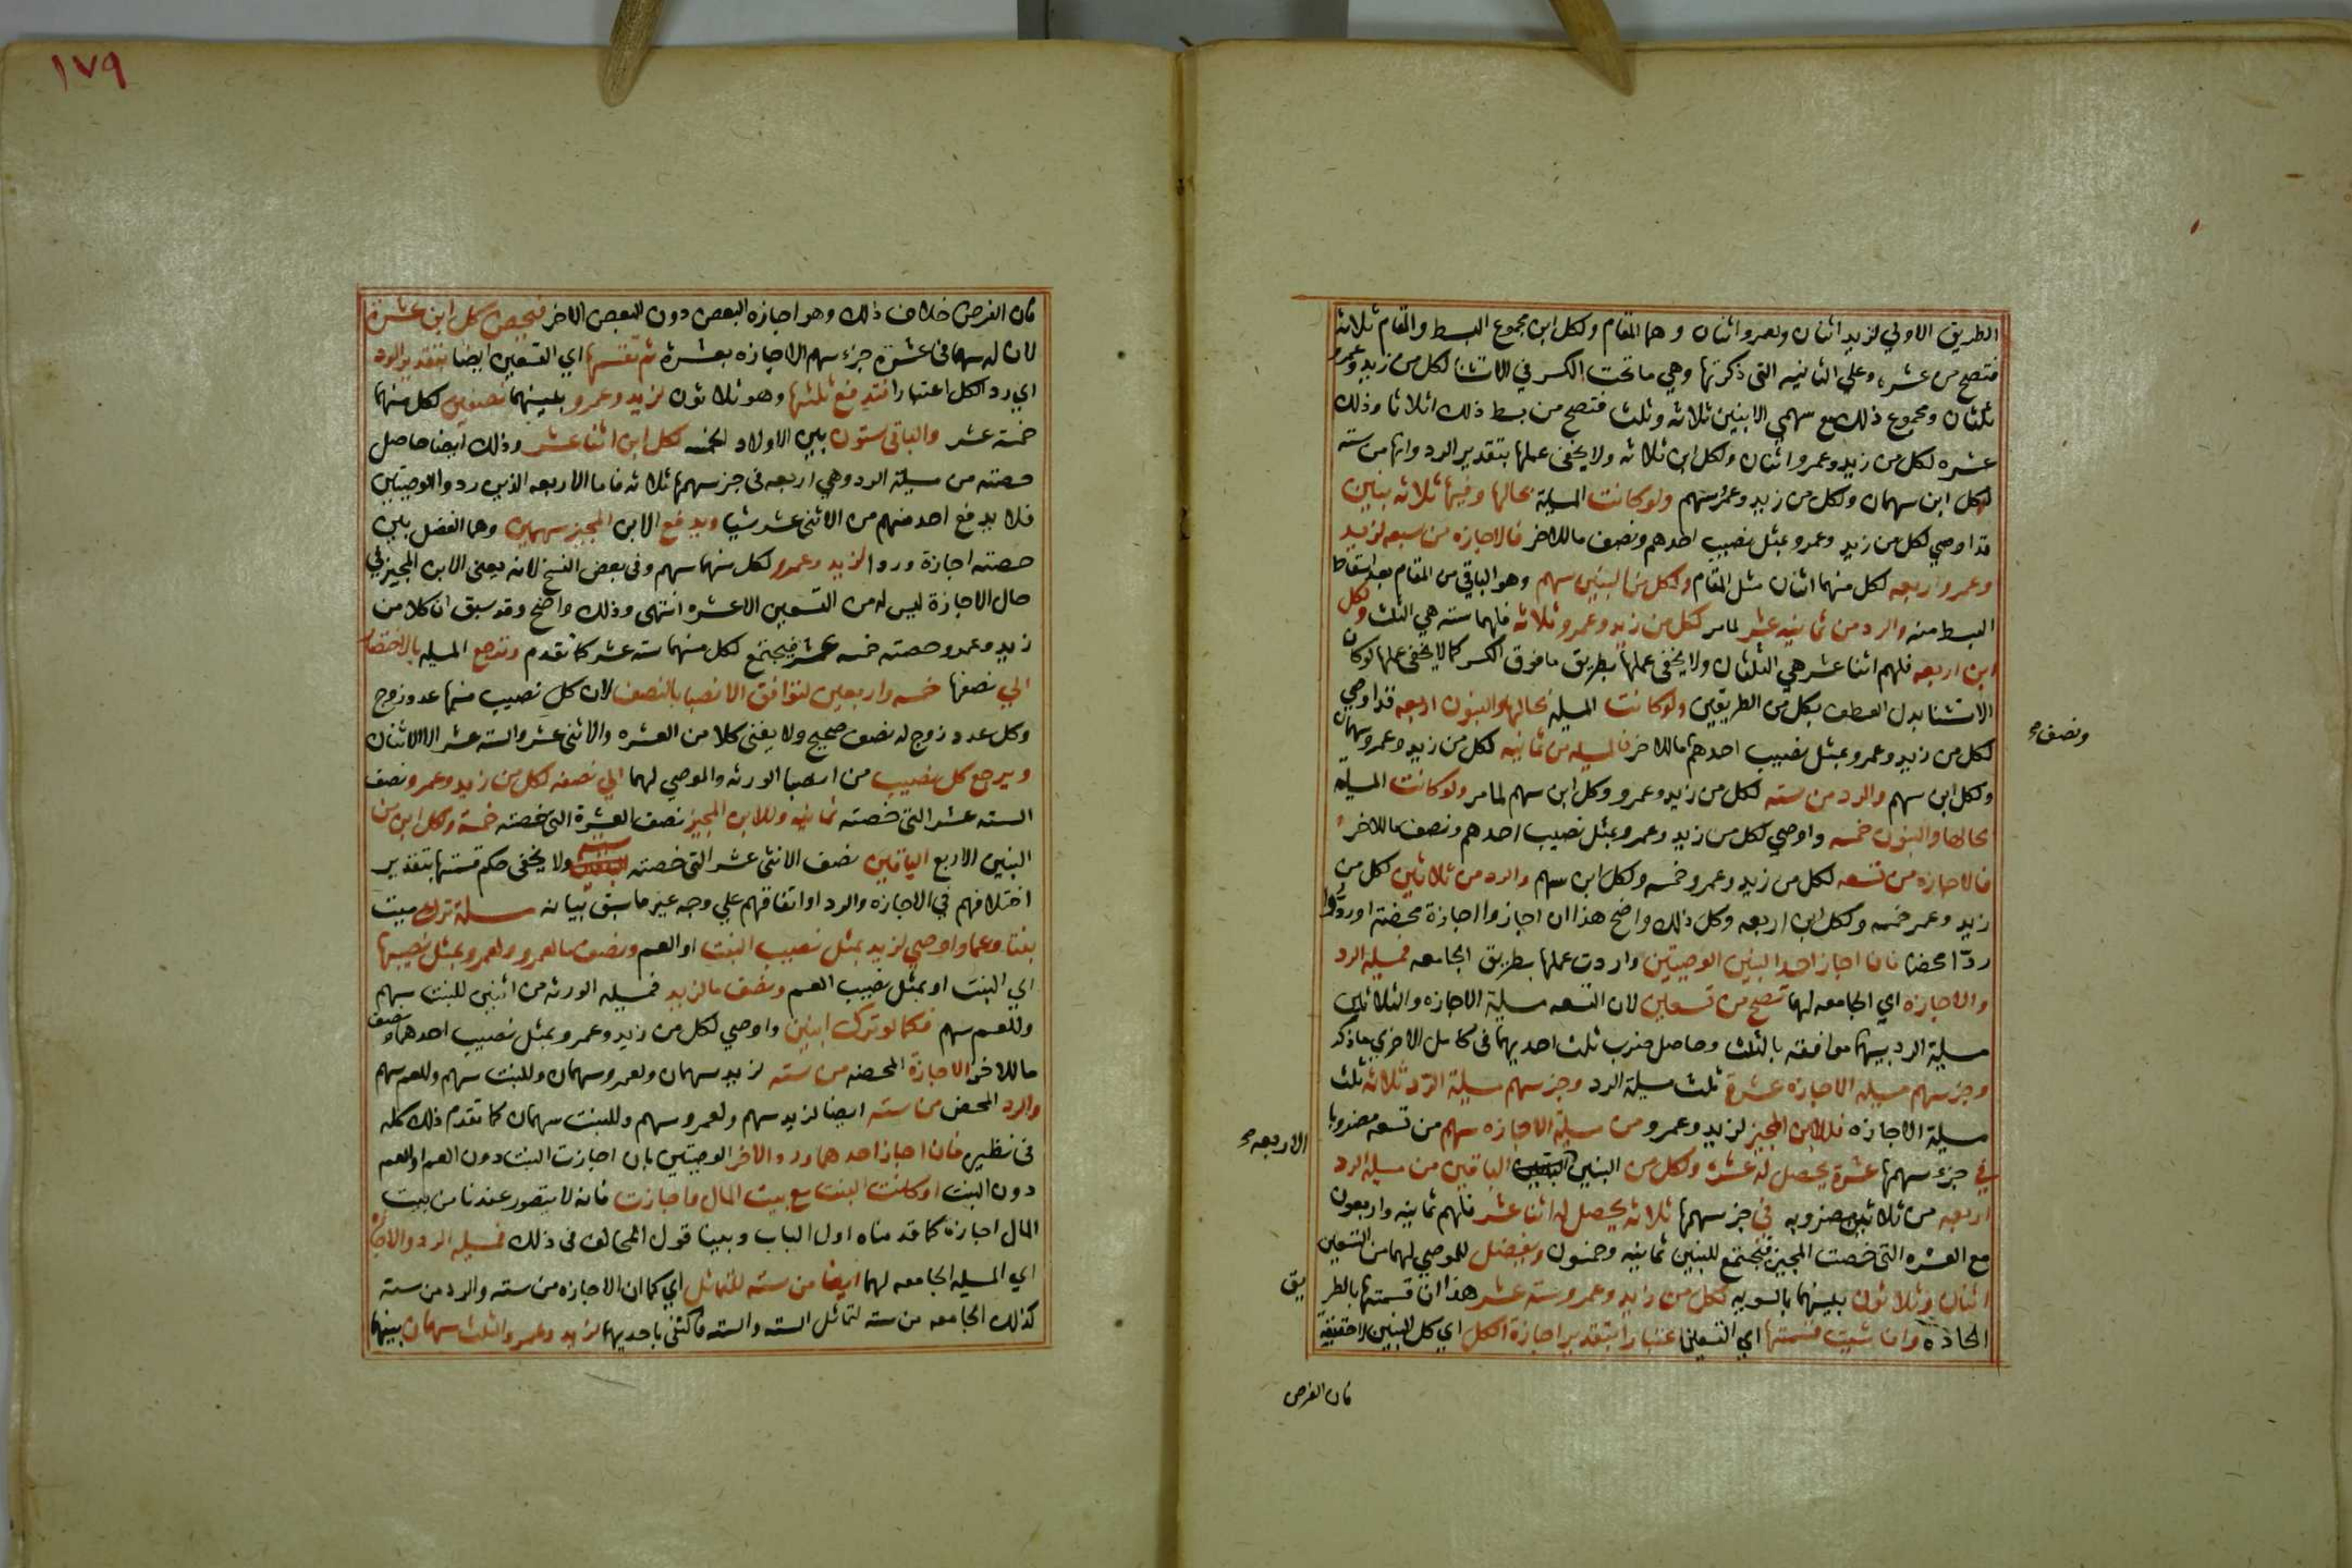 الطريق الاولي لزيد اثنان ولعمرو اثنان وهما المقام ولكل ابن مجموع البسط والمقام ثلاثة
فتصح من عشرة وعلي الثانيه التى ذكرتها وهي ما تحت الكسر في الاستثنا لكل من زيد وعمرو
ثلثان ومجموع ذلك مع سهمي الابنين ثلاثه وثلث فتصح من بسط ذلك اثلاثا وذلك
عشره لكل من زيد وعمرو اثنان ولكل ابن ثلاثه ولا يخفى عملها بتقدير الرد وانها من سته
لكل ابن سهمان ولكل من زيد وعمرو سهم ولو كانت المسيلة بحالها وفيها ثلاثه بنين
قد اوصي لكل من زيد وعمرو بمثل نصيب احدهم ونصف ما للاخر فالاجازه من سبعه لزيد
وعمرو اربعه لكل منهما اثنان مثل المقام ولكل من البنين سهم وهو الباقي من المقام بعد اسقاط
البسط منه والرد من ثمانيه عشر لما مر لكل من زيد وعمرو ثلاثه فلهما سته هي الثلث ولكل
ابن اربعه فلهم اثنا عشر هي الثلثان ولا يخفى عملها بطريق ما فوق الكسر كما لا يخفى عملها لو كان
الاستثنا بدل العطف بكل من الطريقين ولو كانت المسيله بحالها والبنون اربعه قد اوصي
لكل من زيد وعمرو بمثل نصيب احدهم ما للاخر فالمسيله من ثمانيه لكل من زيد وعمرو سهمان
ونصف صح
ولكل ابن سهم والرد من سته لكل من زيد وعمرو وكل ابن سهم لما مر ولو كانت المسيله
بحالها والبنون خمسه واوصي لكل من زيد وعمرو بمثل نصيب احدهم ونصف ما للاخر
فالاجازه من تسعه لكل من زيد وعمرو خمسه ولكل ابن سهم والرد من ثلاثين لكل من
زيد وعمر خمسه ولكل ابن اربعه وكل ذلك واضح هذا ان اجازوا اجازة محضة او ردوا
ردا محضا فان اجاز احد البنين الوصيتين واردت عملها بطريق الجامعه فمسيله الرد
والاجازه اي الجامعه لهما تصح من تسعين لان التسعه مسيلة الاجازه والثلاثين
مسيلة الرد بينهما موافقه بالثلث وحاصل ضرب ثلث احديهما فى كامل الاخري ما ذكر
وجز سهم مسيله الاجازه عشرة ثلث مسيلة الرد وجز سهم مسيلة الرد ثلاثه ثلث
مسيلة الاجازه فللابن المجيز لزيد وعمرو من مسيلة الاجازه سهم من تسعه مضروبا
في جزء سهمها عشرة يحصل له عشره ولكل من البنين الباقين من مسيلة الرد
الاربعه صح
اربعه من ثلاثين مضروبه في جز سهمها ثلاثه يحصل له اثنا عشر فلهم ثمانيه واربعون
مع العشره التى خصت المجيز فيجتمع للبنين ثمانيه وخمسون ويفضل للموصي لهما من التسعين
اثنان وثلاثون بينهما بالسويه لكل من زيد وعمرو سته عشر هذا ان قسمتها بالطريق
الحاذه وان شيت قسمتها اي التسعين اعتبارا بتقدير اجازة الكل اي كل البنين لا حقيقة
فان الفرض
١٧٩
فان الفرض خلاف ذلك وهو اجازه البعض دون البعض الاخر فيخص كل ابن عشرة
لان له سهما فى عشرة جزء سهم الاجازه بعشرة ثم تقسمها اي التسعين ايضا بتقدير الرد
اي رد الكل اعتبارا فتدفع ثلثها وهو ثلاثون لزيد وعمرو بينهما نصفين لكل منهما
خمسة عشر والباقى ستون بين الاولاد لخمسه لكل ابن اثنا عشر وذلك ايضا حاصل
حصته من مسيلة الرد وهي اربعه فى جز سهمها ثلاثه فاما الاربعه الذين ردوا الوصيتين
فلا يدفع احد منهم من الاثنى عشر شيا ويدفع الابن المجيز سهمين وهما الفضل بين
حصته اجازة وردا لزيد وعمرو لكل منهما سهم وفى بعض النسخ لانه يعنى الابن المجيز في
حال الاجازة ليس له من التسعين الا عشره انتهى وذلك واضح وقد سبق ان كلا من
زيد وعمرو حصته خمسه عشر فيجتمع لكل منهما سته عشر كما تقدم وترجع المسيله بالاختصار
الي نصفها خمسه واربعين لتوافق الانصبا بالنصف لان كل نصيب منها عدد زوج
وكل عدد زوج له نصف صحيح ولا يفنى كلا من العشره والاثنى عشر والسته عشر الا الاثنان
ويرجع كل نصيب من انصبا الورثه والموصي لهما الي نصفه لكل من زيد وعمرو نصف
السته عشر التى خصته ثمانيه وللابن المجيز نصف العشرة التى خصته خمسة ولكل ابن من
البنين الاربع الباقين نصف الاثنى عشر التى خصته ستة ولا يخفى حكم قسمتها بتقدير
اختلافهم في الاجازه والرد او اتفاقهم علي وجه غير ما سبق بيانه مسيلة ترك ميت
بنتا وعما واوصي لزيد بمثل نصيب البنت او العم ونصف ما لعمرو ولعمرو بمثل نصيبها
اي البنت او بمثل نصيب العم ونصف ما لزيد فمسيله الورثه من اثنين للبنت سهم
وللعم سهم فكما لو ترك ابنين واوصي لكل من زيد وعمرو بمثل نصيب احدهما ونصف
ما للاخر الاجازة المحضه من سته لزيد سهمان ولعمرو سهمان وللبنت سهم وللعم سهم
والرد المحض من سته ايضا لزيد سهم ولعمرو سهم وللبنت سهمان كما تقدم ذلك كله
فى نظيره فان اجاز احدهما ورد والاخر الوصيتين بان اجازت البنت دون العم او العم
دون البنت او كانت البنت مع بيت المال فاجازت فانه لا يتصور عندنا من بيت
المال اجازة كما قدمناه اول الباب وبينا قول المخالف فى ذلك فمسيله الرد والاجازه
اي المسيله الجامعه لهما ايضا من سته للتماثل اي كما ان الاجازه من سته والرد من سته
كذلك الجامعه من سته لتماثل السته والسته فاكتفى باحديهما لزيد وعمرو الثلث سهمان بينهما